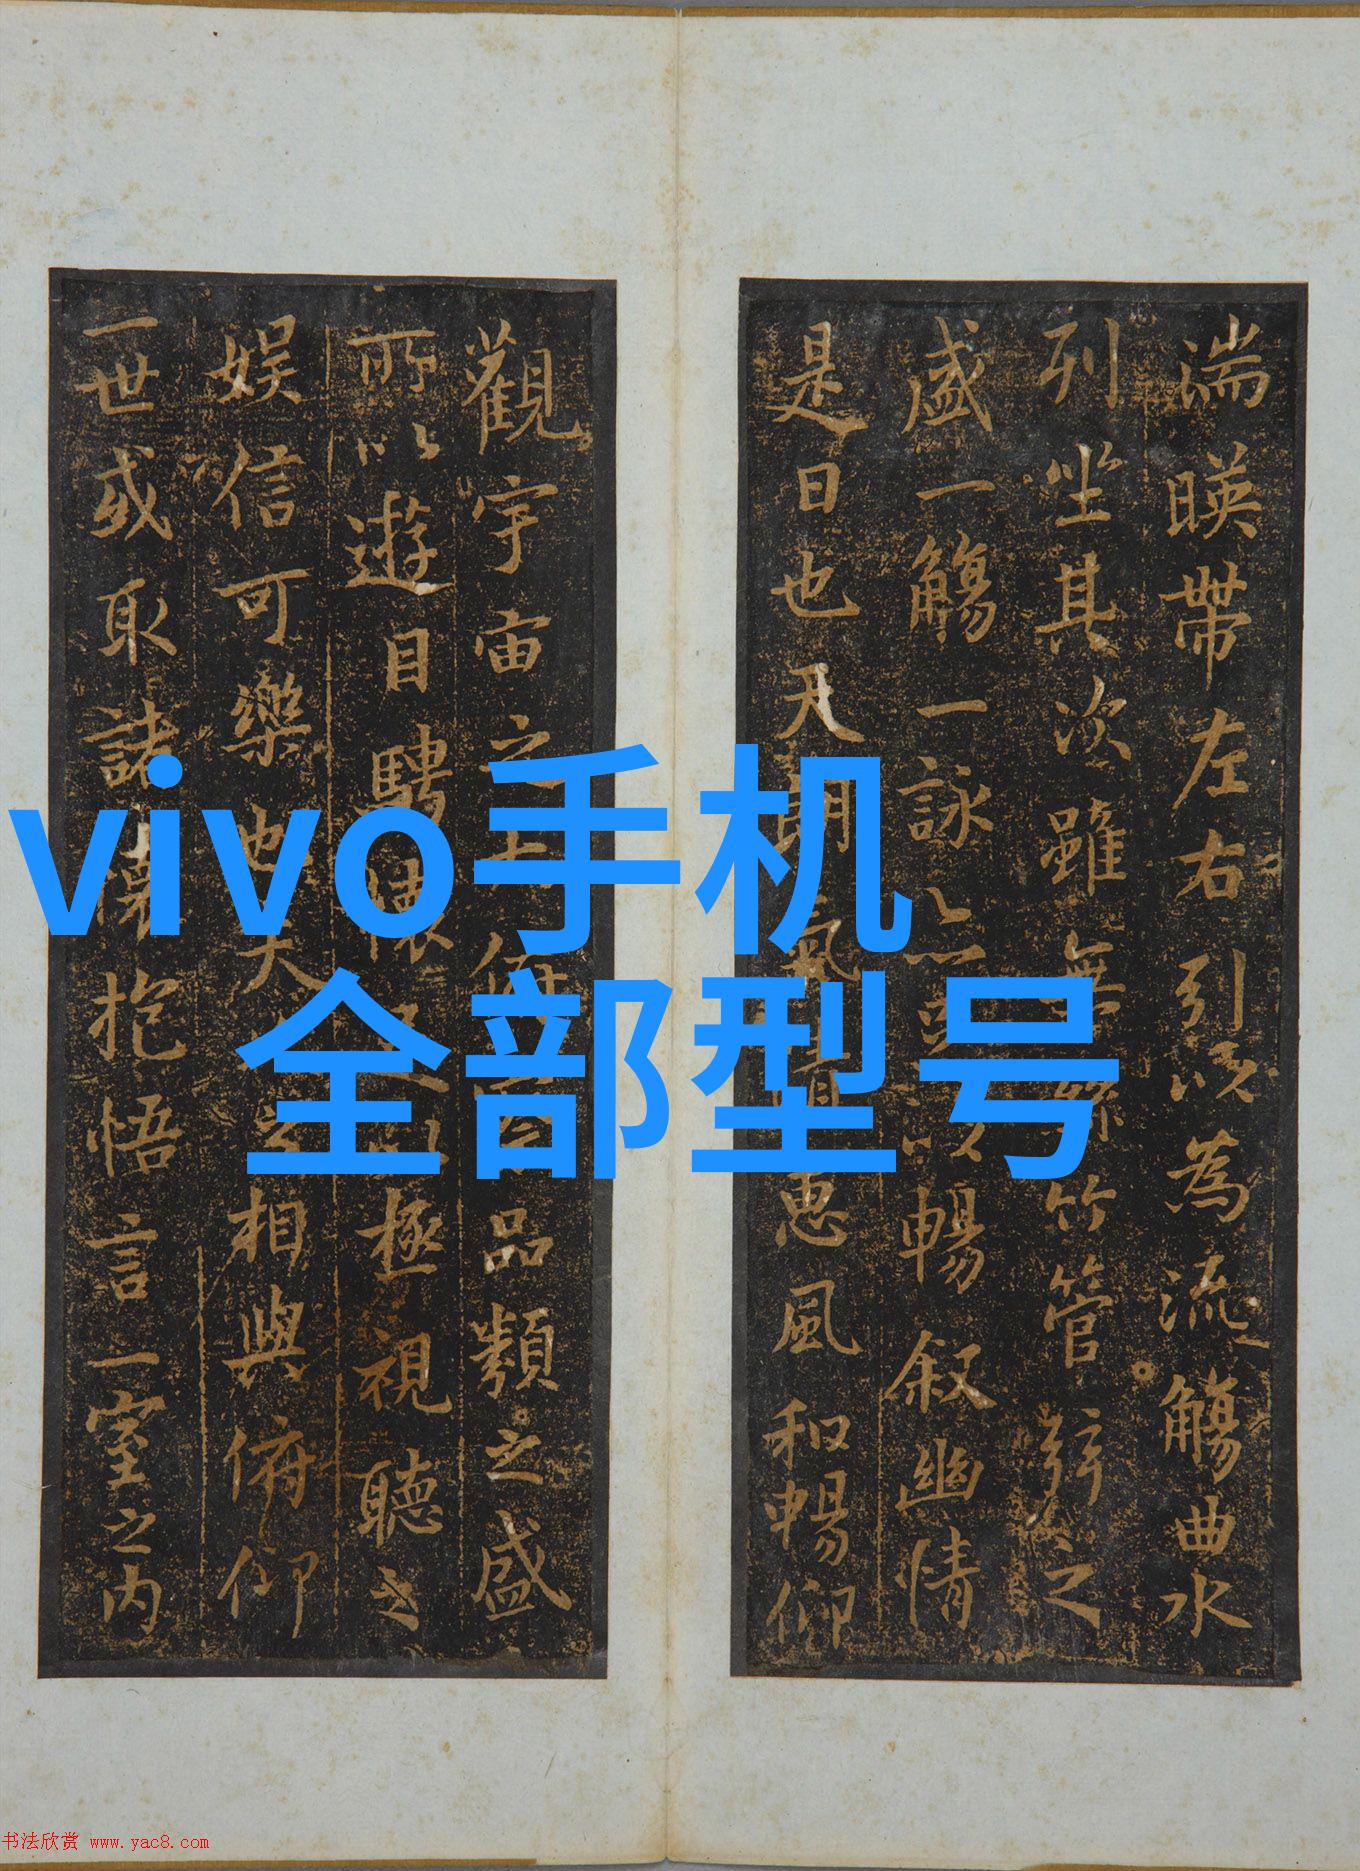 vivo手机
全部型号
湍暎帶左右引以為流觴曲水
列坐其次雖無絲竹管絃之
盛一觴一詠亦足以暢叙幽情
是日也天朗氣惠風和暢仰
觀宇宙之大俯品類之盛
所以遊目騁懷足以極視聽之
娱信可樂也夫之相與俯仰
一世或取諸懷抱悟言一室之内
书法欣赏 www.yac8.com